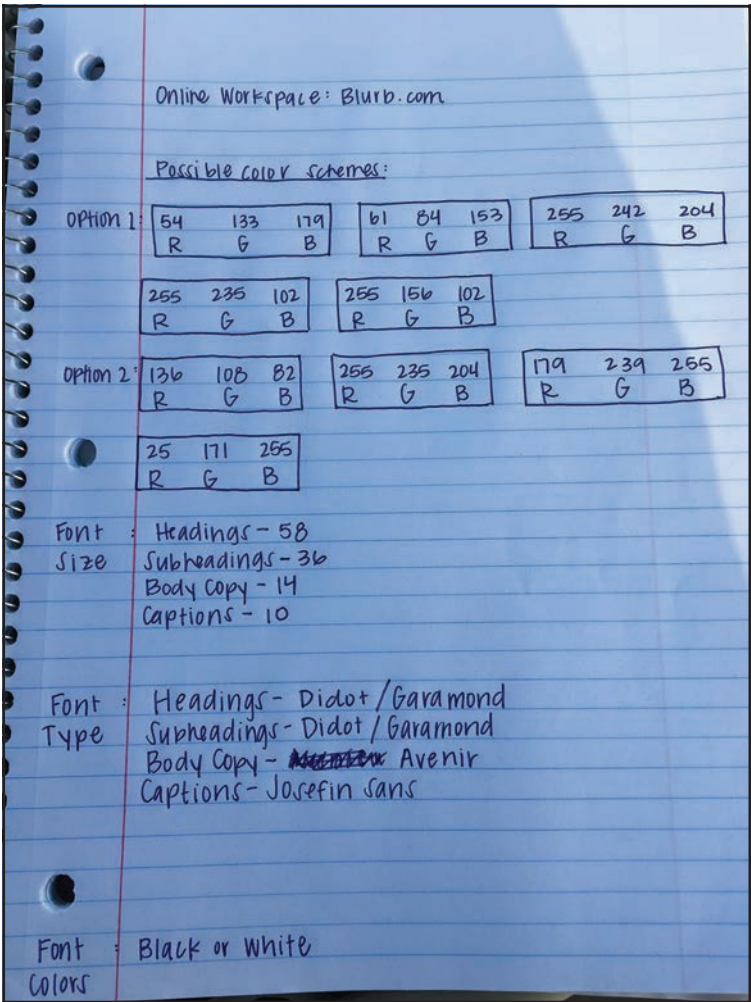 Online Workspace: Blurb.com
Possible color schemes:
Option 1: 54 133 179 61 84 153 255 242 204
R G B R G B R G B
255 235 102 255 156 102
R G B R G B
Option 2: 136 108 82 255 235 204 179 239 255
R G B R G B R G B
25 171 255
R G B
Font : Headings - 58
Size Subheadings - 36
Body Copy - 14
Captions - 10
Font : Headings - Didot / Garamond
Type Subheadings - Didot / Garamond
Body Copy - Avenir
Captions - Josefin Sans
Font : Black or White
Colors